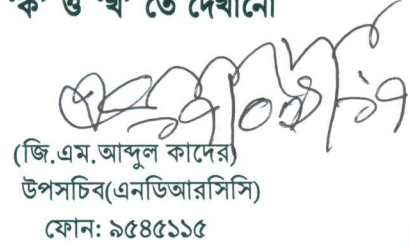 'ক' ও 'খ' তে দেখানো
(জি.এম.আব্দুল কাদের)
উপসচিব(এনডিআরসিসি)
ফোন: ৯৫৪৫১১৫